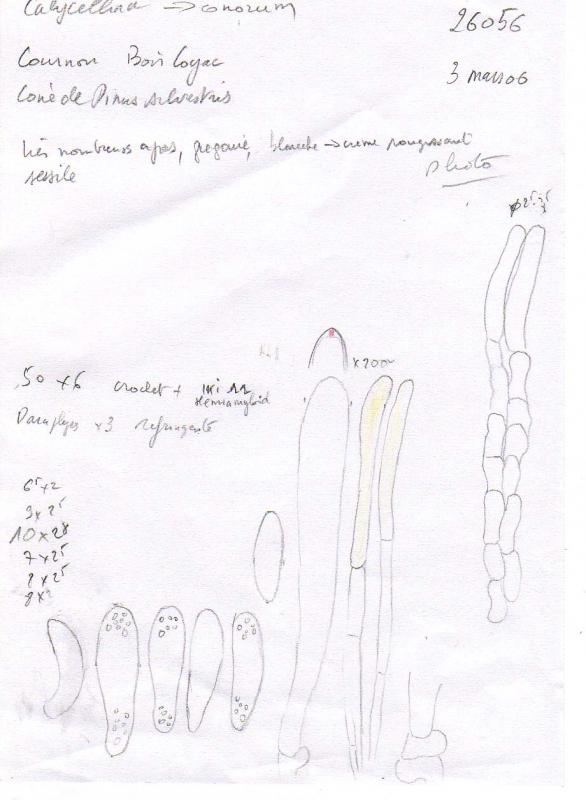 Calycellina → conorum
26056
Cournon Bois Loyac
3 mars 06
Cone de Pinus sylvestris
très nombreuses apos, grégaire, blanche → crème rougissant
sessile
photo
50 x 6 crochet +
Hemiamyloid
x 2000
Paraphyses x 3 refringente
6⁵ x 2
3 x 2⁵
10 x 28
7 x 2⁵
2 x 2⁵
8 x 2